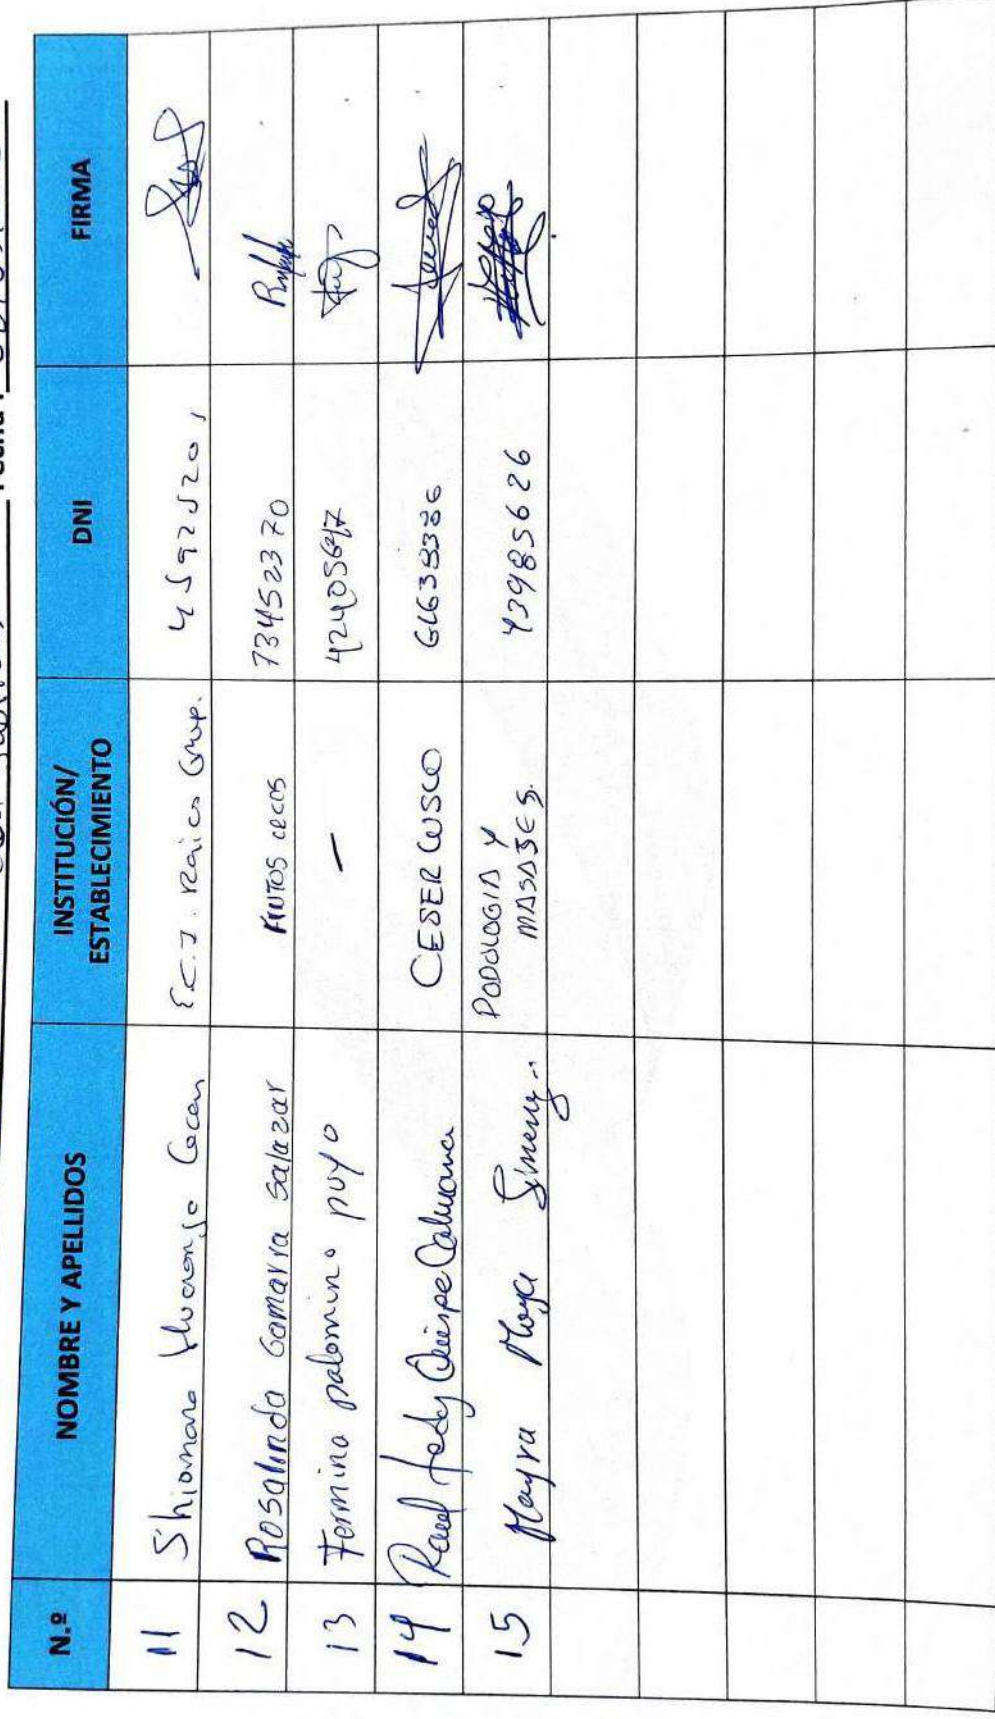 N.º NOMBRE Y APELLIDOS INSTITUCIÓN/ ESTABLECIMIENTO DNI FIRMA
11 Shiomara E.C.J. Raices Grup. 45925201
12 Rosalinda Gamarra Salazar FRUTOS CECOS 73452370
13 Fermina palomino puyo - 42405647
14 Raul fredy Quispe CESER CUSCO
15 Mayra Moya Jimenez.. PODOLOGIA Y
MASAJES. 43985626